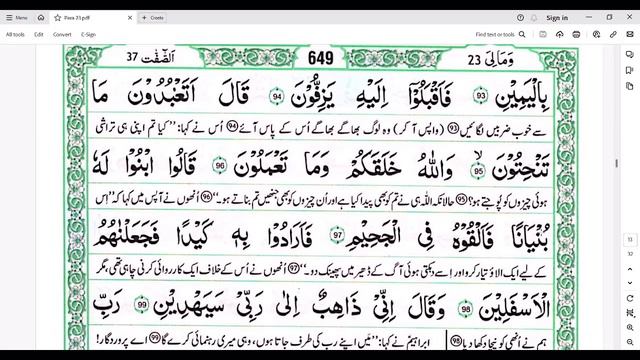 Menu Para 23.pdf + Create Sign in
All tools Edit Convert E-Sign Find text or tools
وَمَالِىَ 23 649 اَلصّٰٓفّٰت 37
بِالْيَمِيْنِ 93 فَاَقْبَلُوْٓا اِلَيْهِ يَزِفُّوْنَ 94 قَالَ اَتَعْبُدُوْنَ مَا
سے خوب ضربیں لگائیں 93 (واپس آ کر) وہ لوگ بھاگے بھاگے اُس کے پاس آئے 94 اُس نے کہا: ’’کیا تم اپنی ہی تراشی
تَنْحِتُوْنَ 95 وَاللّٰهُ خَلَقَكُمْ وَمَا تَعْمَلُوْنَ 96 قَالُوا ابْنُوْا لَهٗ
ہوئی چیزوں کو پُوجتے ہو؟ 95 حالانکہ اللہ ہی نے تم کو بھی پیدا کیا ہے اور اُن چیزوں کو بھی جنھیں تم بناتے ہو۔‘‘ 96 اُنھوں نے آپس میں کہا کہ ’’اِس
بُنْيَانًا فَاَلْقُوْهُ فِى الْجَحِيْمِ 97 فَاَرَادُوْا بِهٖ كَيْدًا فَجَعَلْنٰهُمُ
کے لیے ایک الاؤ تیار کرو اور اِسے دہکتی ہوئی آگ کے ڈھیر میں پھینک دو۔‘‘ 97 اُنھوں نے اُس کے خلاف ایک کارروائی کرنی چاہی تھی، مگر
الْاَسْفَلِيْنَ 98 وَقَالَ اِنِّىْ ذَاهِبٌ اِلٰى رَبِّىْ سَيَهْدِيْنِ 99 رَبِّ
ہم نے اُنھی کو نیچا دکھا دیا 98 ابراہیمؑ نے کہا: ’’میں اپنے رب کی طرف جاتا ہوں، وہی میری رہنمائی کرے گا 99 اے پروردگار!